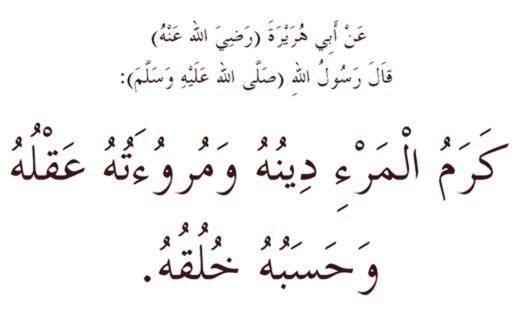 عَنْ أَبِي هُرَيْرَةَ (رَضِيَ الله عَنْهُ)
قَالَ رَسُولُ اللهِ (صَلَّى الله عَلَيْهِ وَسَلَّمَ):
كَرَمُ الْمَرْءِ دِينُهُ وَمُروُءَتُهُ عَقْلُهُ
وَحَسَبُهُ خُلُقُهُ.